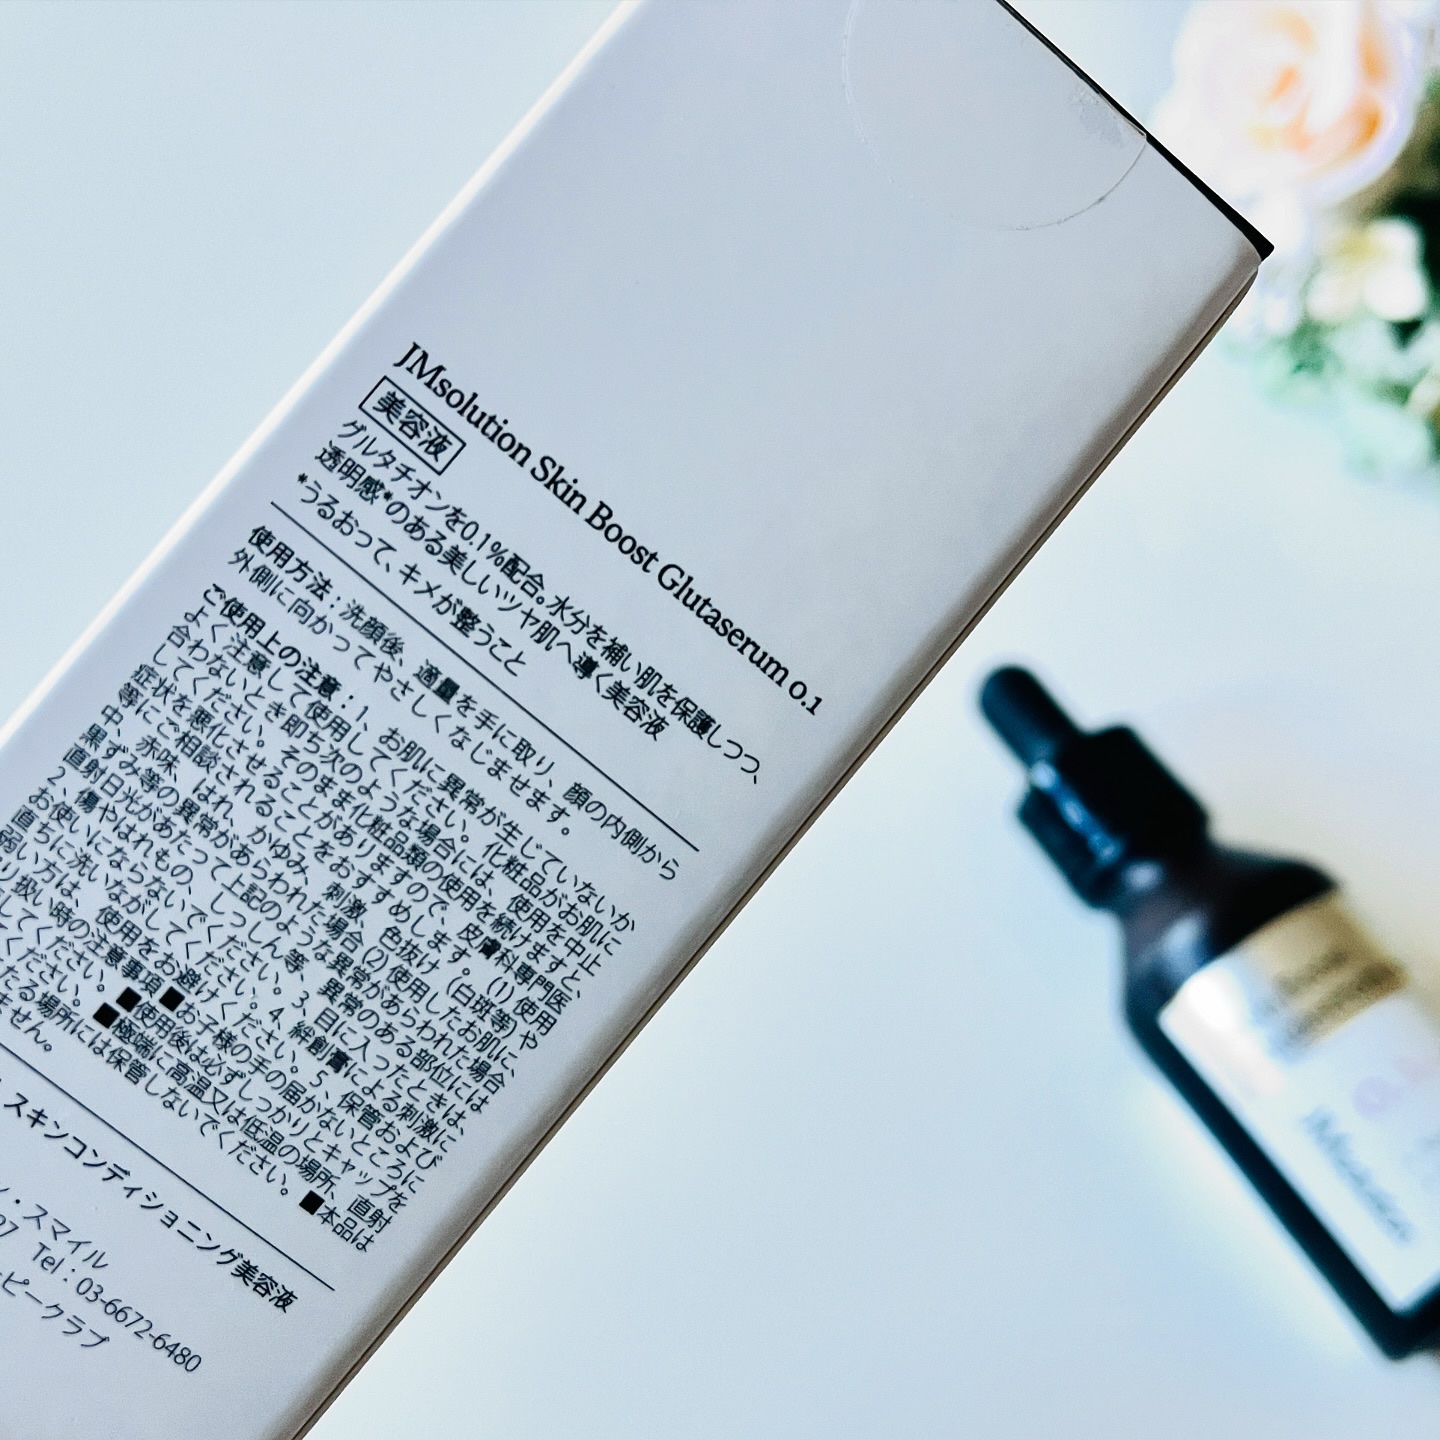 JMsolution Skin Boost Glutaserum 0.1
美容液
グルタチオンを0.1%配合。水分を補い肌を保護しつつ、
透明感*のある美しいツヤ肌へ導く美容液
*うるおって、キメが整うこと
使用方法：洗顔後、適量を手に取り、顔の内側から
外側に向かってやさしくなじませます。
ご使用上の注意：1、お肌に異常が生じていないか
よく注意して使用してください。化粧品がお肌に
合わないとき即ち次のような場合には、使用を中止
してください。そのまま化粧品類の使用を続けますと、
症状を悪化させることがありますので、皮膚科専門医
等にご相談されることをおすすめします。(1)使用
中、赤味、はれ、かゆみ、刺激、色抜け(白斑等)や
黒ずみ等の異常があらわれた場合(2)使用したお肌に、
直射日光があたって上記のような異常があらわれた場合
2、傷やはれもの、しっしん等、異常のある部位には
お使いにならないでください。3、目に入ったときは、
直ちに洗いながしてください。4、絆創膏による刺激に
弱い方は、使用をお避けください。5、保管および
り扱い時の注意事項■お子様の手の届かないところに
してください。■使用後は必ずしっかりとキャップを
ください。■極端に高温又は低温の場所、直射
たる場所には保管しないでください。■本品は
ません。
スキンコンディショニング美容液
・スマイル
07 Tel：03-6672-6480
ピークラブ
JMsolution